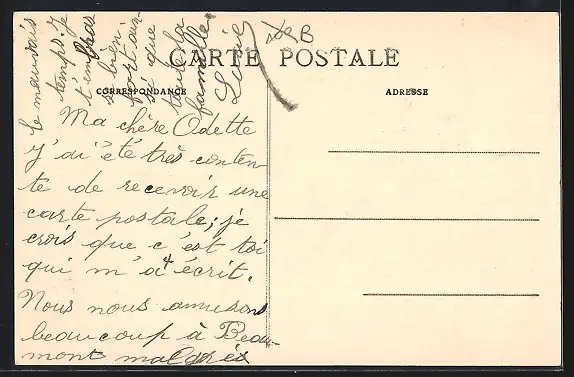 CARTE POSTALE
CORRESPONDANCE
ADRESSE
Ma chère Odette
J'ai été très conten-
te de recevoir une
carte postale; je
crois que c'est toi
qui m'a écrit.
Nous nous amusons
beaucoup à Beau-
mont malgrés
le mauvais
temps. Je
t'embrasse
bien
fort ain-
si que
toute la
famille.